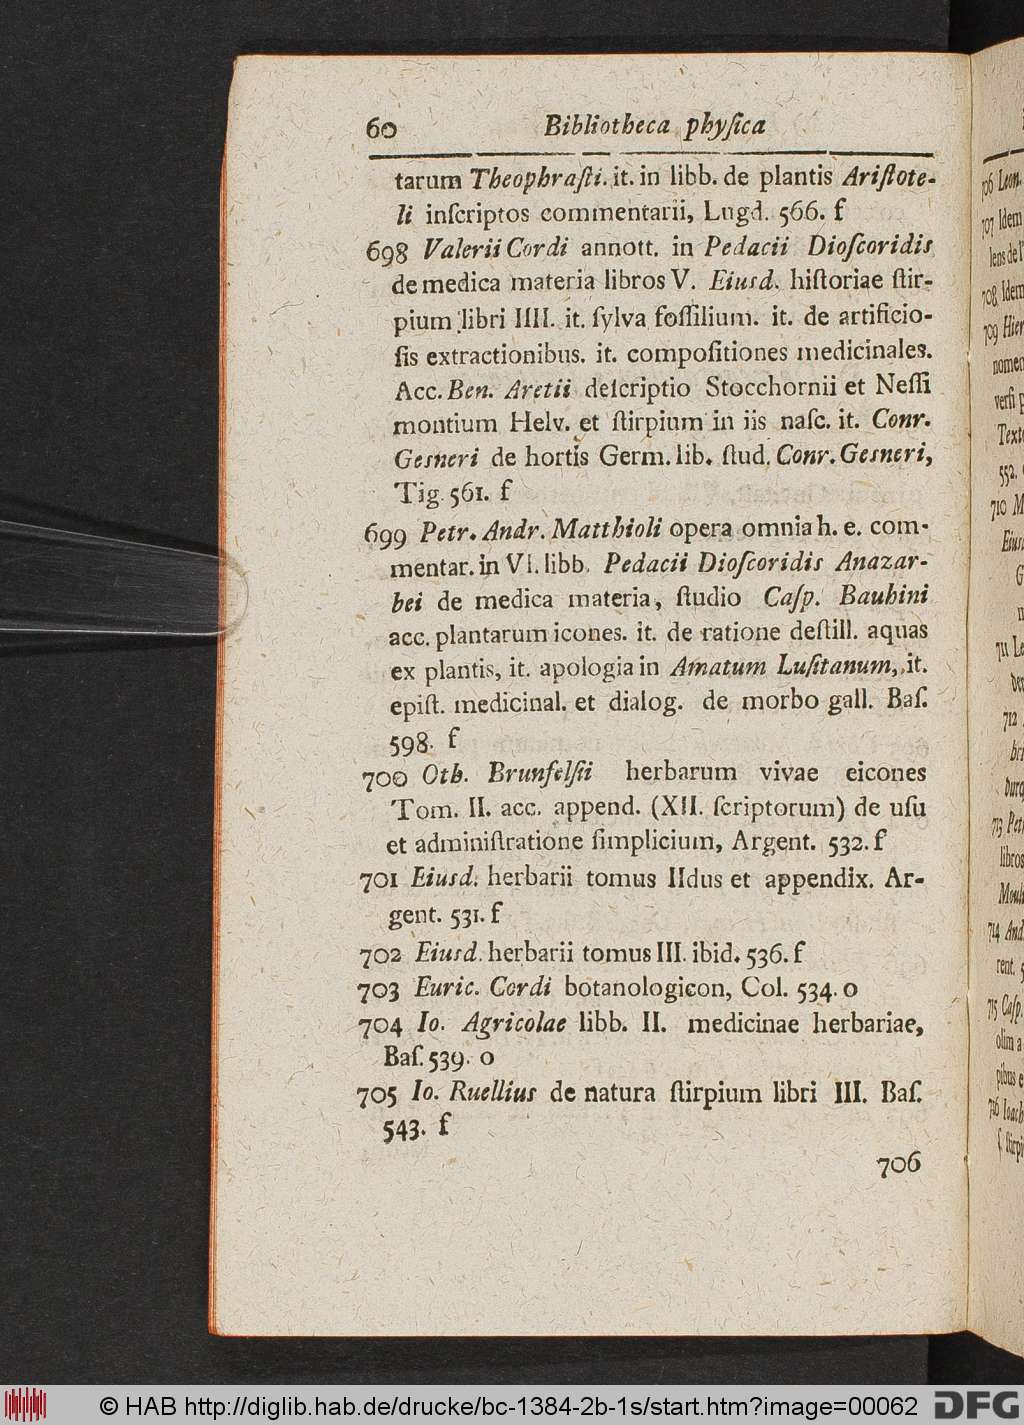 60 Bibliotheca phyſica
tarum Theophraſti. it. in libb. de plantis Ariſtote-
li inſcriptos commentarii, Lugd. 566. f
698 Valerii Cordi annott. in Pedacii Dioſcoridis
de medica materia libros V. Eiusd. hiſtoriae ſtir-
pium libri IIII. it. ſylva foſſilium. it. de artificio-
ſis extractionibus. it. compoſitiones medicinales.
Acc. Ben. Aretii deſcriptio Stocchornii et Neſſi
montium Helv. et ſtirpium in iis naſc. it. Conr.
Gesneri de hortis Germ. lib. ſtud. Conr. Gesneri,
Tig. 561. f
699 Petr. Andr. Matthioli opera omnia h. e. com-
mentar. in VI. libb. Pedacii Dioſcoridis Anazar-
bei de medica materia, ſtudio Caſp. Bauhini
acc. plantarum icones. it. de ratione deſtill. aquas
ex plantis, it. apologia in Amatum Luſitanum, it.
epiſt. medicinal. et dialog. de morbo gall. Baſ.
598. f
700 Oth. Brunfelſii herbarum vivae eicones
Tom. II. acc. append. (XII. ſcriptorum) de uſu
et adminiſtratione ſimplicium, Argent. 532. f
701 Eiusd. herbarii tomus IIdus et appendix. Ar-
gent. 531. f
702 Eiusd. herbarii tomus III. ibid. 536. f
703 Euric. Cordi botanologicon, Col. 534. o
704 Io. Agricolae libb. II. medicinae herbariae,
Baſ. 539. o
705 Io. Ruellius de natura ſtirpium libri III. Baſ.
543. f
706
706 Leon.
707 Idem
lens de l'
708 Idem
709 Hier
nomen
verſi p
Texto
552.
710 M
Eiusd
G
711 Le
712
713 Petr
libros
714 And
rent. 5
715 Caſp.
olim a
pibus e
716 Ioach
ſtirpi
© HAB http://diglib.hab.de/drucke/bc-1384-2b-1s/start.htm?image=00062
DFG